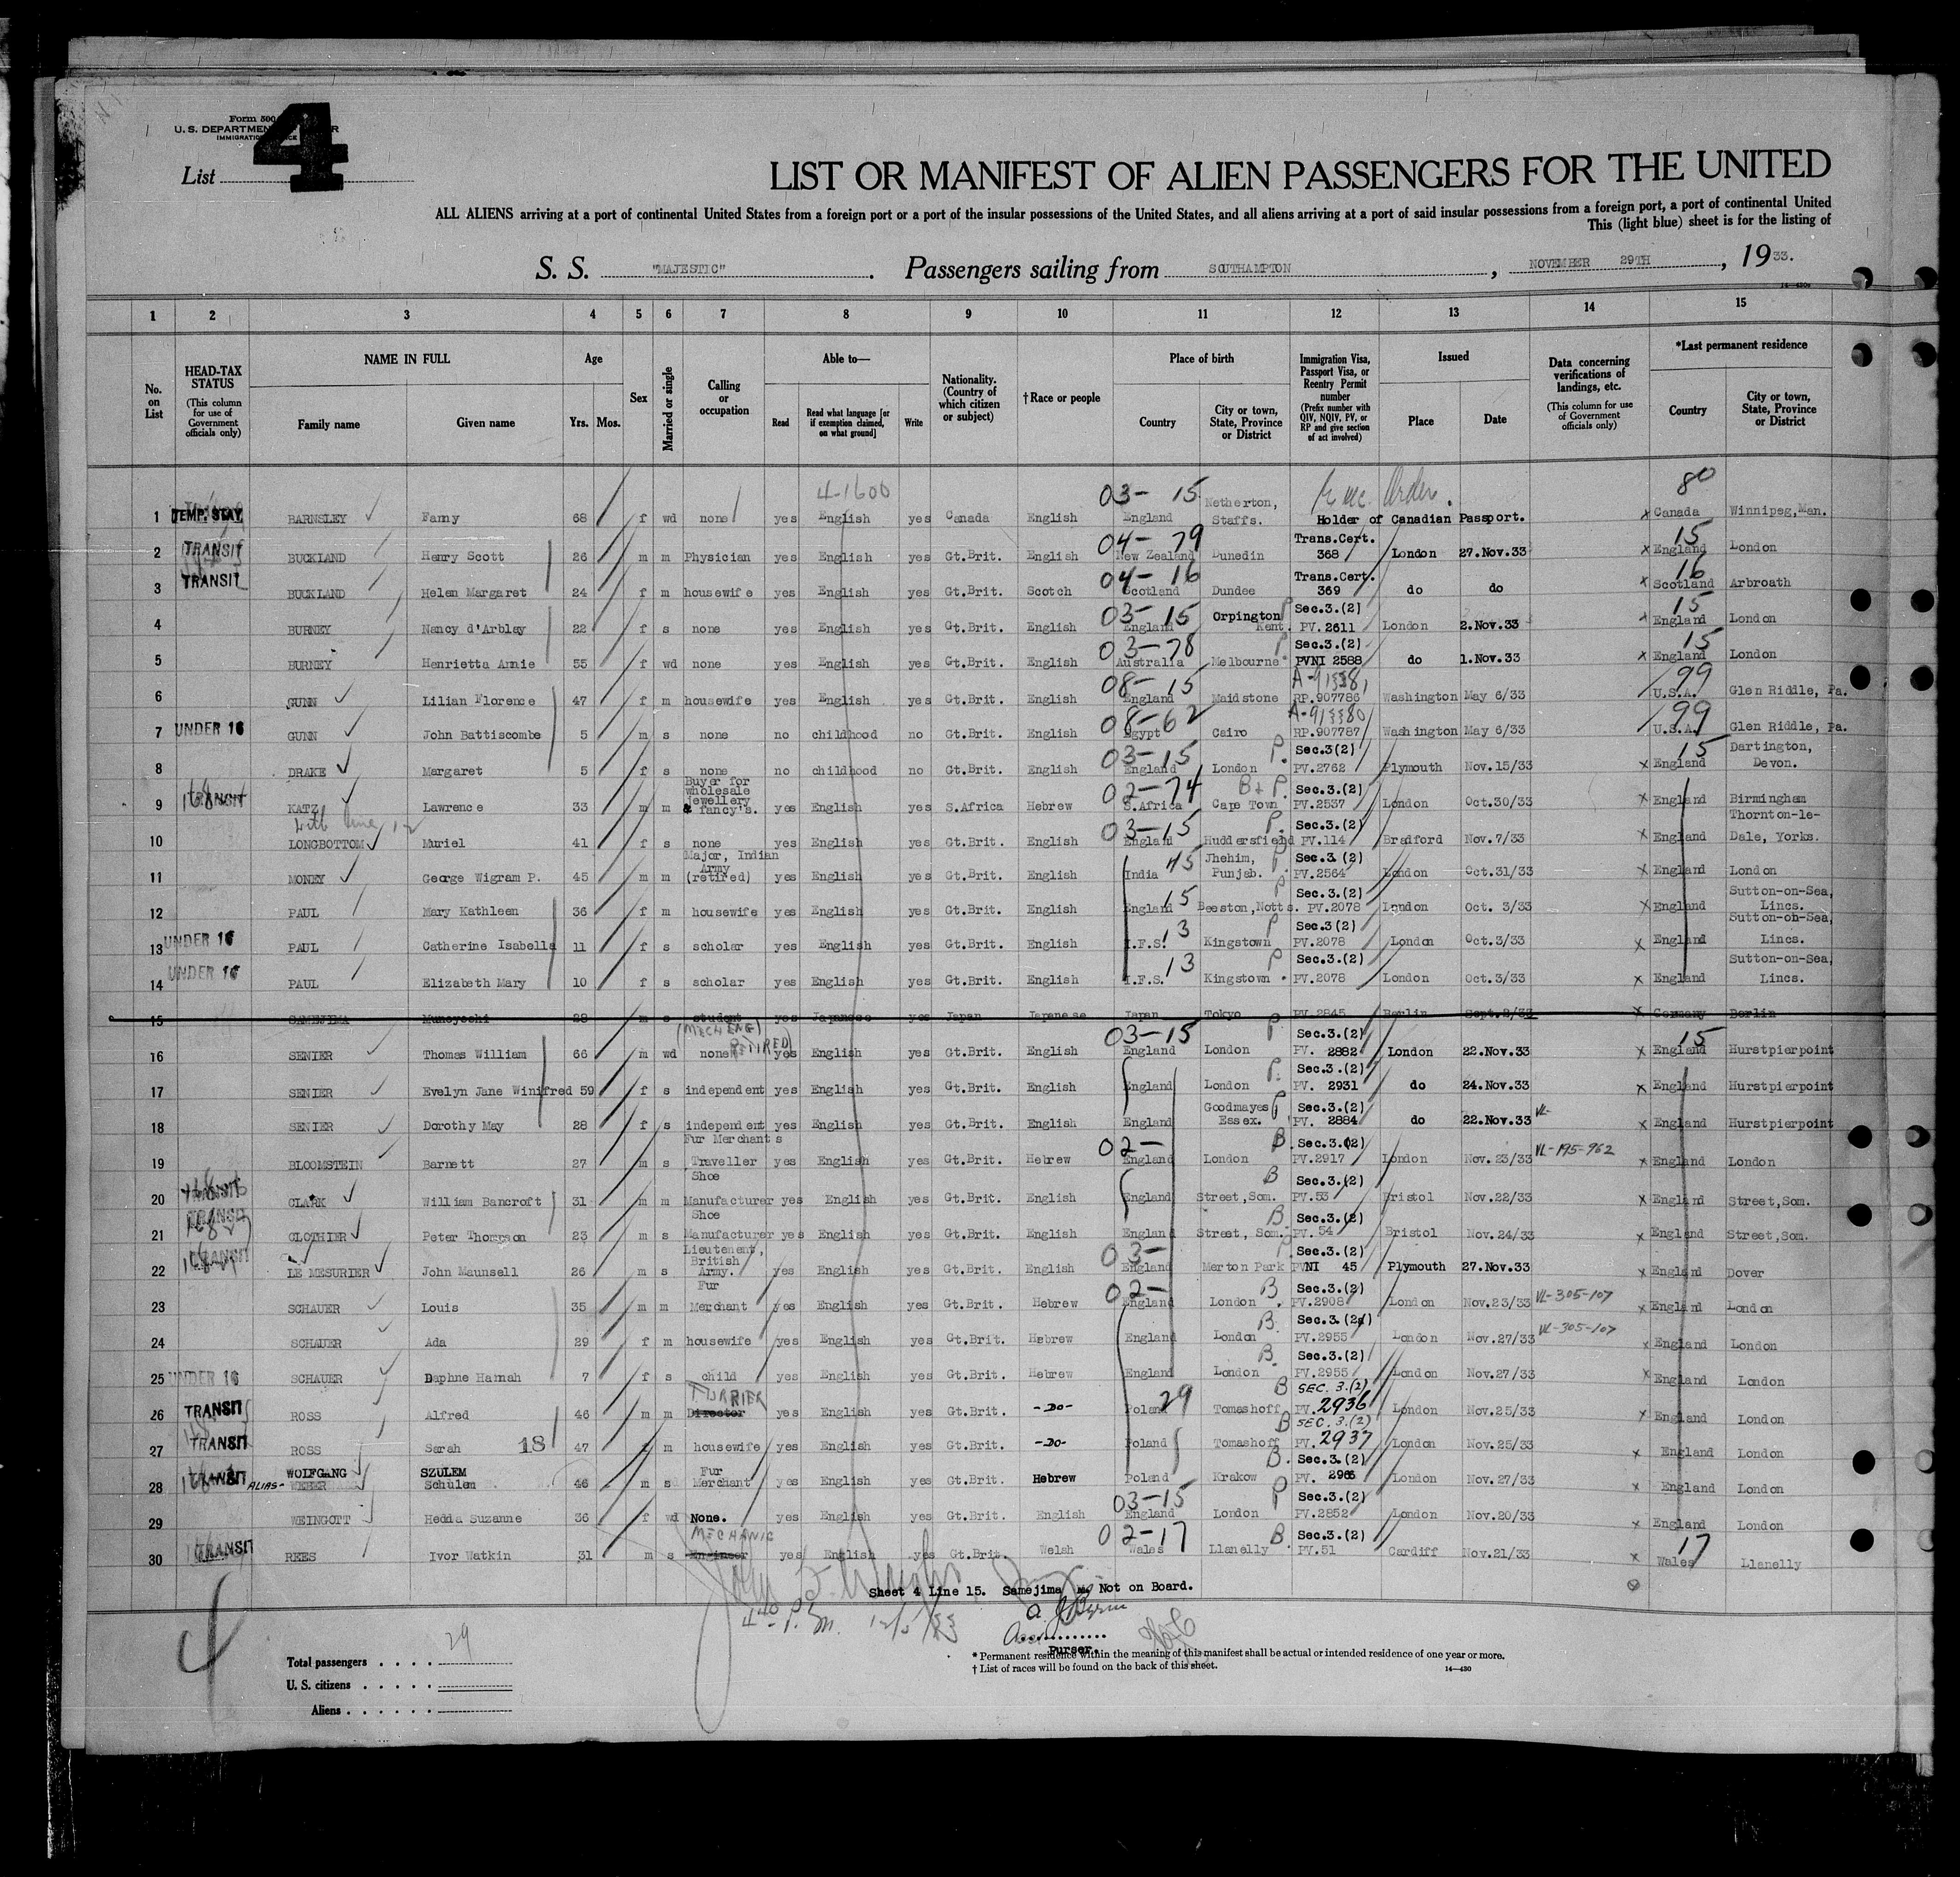 Form 500
U. S. DEPARTMENT
List 4
LIST OR MANIFEST OF ALIEN PASSENGERS FOR THE UNITED
ALL ALIENS arriving at a port of continental United States from a foreign port or a port of the insular possessions of the United States, and all aliens arriving at a port of said insular possessions from a foreign port, a port of continental United
This (light blue) sheet is for the listing of
S. S. "MAJESTIC". Passengers sailing from SOUTHAMPTON, NOVEMBER 29TH, 1933.
1 2 3 4 5 6 7 8 9 10 11 12 13 14 15
No. on List
HEAD-TAX STATUS (This column for use of Government officials only)
NAME IN FULL Family name Given name
Age Yrs. Mos.
Sex
Married or single
Calling or occupation
Able to— Read Read what language [or if exemption claimed, on what ground] Write
Nationality. (Country of which citizen or subject)
†Race or people
Place of birth Country City or town, State, Province or District
Immigration Visa, Passport Visa, or Reentry Permit number (Prefix number with QIV, NQIV, PV, or RP and give section of act involved)
Issued Place Date
Data concerning verifications of landings, etc. (This column for use of Government officials only)
*Last permanent residence Country City or town, State, Province or District
4-1600 03-15 80
1 TEMP. STAY BARNSLEY Fanny 68 f wd none yes English yes Canada English England Netherton, Staffs. Holder of Canadian Passport. x Canada Winnipeg, Man.
04-79 15
2 TRANSIT BUCKLAND Henry Scott 26 m m Physician yes English yes Gt.Brit. English New Zealand Dunedin Trans.Cert. 368 London 27.Nov.33 x England London
04-16 16
3 TRANSIT BUCKLAND Helen Margaret 24 f m housewife yes English yes Gt.Brit. Scotch Scotland Dundee Trans.Cert. 369 do do x Scotland Arbroath
03-15 15
4 BURNEY Nancy d'Arblay 22 f s none yes English yes Gt.Brit. English England Orpington Kent. Sec.3.(2) PV.2611 London 2.Nov.33 x England London
03-78 15
5 BURNEY Henrietta Annie 55 f wd none yes English yes Gt.Brit. English Australia Melbourne Sec.3.(2) PVNI 2588 do 1.Nov.33 x England London
08-15 99
6 GUNN Lilian Florence 47 f m housewife yes English yes Gt.Brit. English England Maidstone RP.907786 Washington May 6/33 U.S.A. Glen Riddle, Pa.
08-62 99
7 UNDER 16 GUNN John Battiscombe 5 m s none no childhood no Gt.Brit. English Egypt Cairo RP.907787 Washington May 6/33 U.S.A. Glen Riddle, Pa.
03-15 P. 15
8 DRAKE Margaret 5 f s none no childhood no Gt.Brit. English England London Sec.3(2) PV.2762 Plymouth Nov.15/33 x England Dartington, Devon.
02-74 B + P.
9 TRANSIT KATZ Lawrence 33 m m Buyer for wholesale jewellery & fancy's. yes English yes S.Africa Hebrew S.Africa Cape Town Sec.3.(2) PV.2537 London Oct.30/33 x England Birmingham
03-15 P.
10 LONGBOTTOM Muriel 41 f s none yes English yes Gt.Brit. English England Huddersfield Sec.3.(2) PV.114 Bradford Nov.7/33 x England Thornton-le-Dale, Yorks.
45 P
11 MONEY George Wigram P. 45 m m Major, Indian Army (retired) yes English yes Gt.Brit. English India Jhehim, Punjab. Sec.3 (2) PV.2564 London Oct.31/33 x England London
15 P
12 PAUL Mary Kathleen 36 f m housewife yes English yes Gt.Brit. English England Beeston,Notts. Sec.3.(2) PV.2078 London Oct. 3/33 x England Sutton-on-Sea, Lincs.
13 P
13 UNDER 16 PAUL Catherine Isabella 11 f s scholar yes English yes Gt.Brit. English I.F.S. Kingstown Sec.3(2) PV.2078 London Oct.3/33 x England Sutton-on-Sea, Lincs.
13 P
14 UNDER 16 PAUL Elizabeth Mary 10 f s scholar yes English yes Gt.Brit. English I.F.S. Kingstown Sec.3.(2) PV.2078 London Oct.3/33 x England Sutton-on-Sea, Lincs.
15 SAMEJIMA Muneyoshi 28 m s student yes Japanese yes Japan Japanese Japan Tokyo PV.2845 Berlin Sept.2/33 x Germany Berlin
03-15 P 15
16 SENIER Thomas William 66 m wd none (MECH ENG RETIRED) yes English yes Gt.Brit. English England London Sec.3.(2) PV. 2882 London 22.Nov.33 x England Hurstpierpoint
17 SENIER Evelyn Jane Winifred 59 f s independent yes English yes Gt.Brit. English England London P. Sec.3.(2) PV. 2931 do 24.Nov.33 x England Hurstpierpoint
18 SENIER Dorothy May 28 f s independent yes English yes Gt.Brit. English England Goodmayes Essex. P Sec.3.(2) PV. 2884 do 22.Nov.33 VL- x England Hurstpierpoint
02- B
19 BLOOMSTEIN Barnett 27 m s Fur Merchants Traveller yes English yes Gt.Brit. Hebrew England London Sec.3.(2) PV.2917 London Nov.23/33 VL-195-962 x England London
20 TRANSIT CLARK William Bancroft 31 m m Shoe Manufacturer yes English yes Gt.Brit. English England Street,Som. B Sec.3.(2) PV.53 Bristol Nov.22/33 x England Street,Som.
21 TRANSIT CLOTHIER Peter Thompson 23 m s Shoe Manufacturer yes English yes Gt.Brit. English England Street, Som. B Sec.3.(2) PV. 54 Bristol Nov.24/33 x England Street,Som.
03-
22 TRANSIT LE MESURIER John Maunsell 26 m s Lieutenant, British Army. yes English yes Gt.Brit. English England Merton Park Sec.3.(2) PVNI 45 Plymouth 27.Nov.33 x England Dover
02- B
23 SCHAUER Louis 35 m m Fur Merchant yes English yes Gt.Brit. Hebrew England London Sec.3.(2) PV.2908 London Nov.23/33 VL-305-107 x England London
24 SCHAUER Ada 29 f m housewife yes English yes Gt.Brit. Hebrew England London B. Sec.3.(2) PV.2955 London Nov.27/33 VL-305-107 x England London
25 UNDER 16 SCHAUER Daphne Hannah 7 f s child yes English yes Gt.Brit. Hebrew England London B. Sec.3.(2) PV.2955 London Nov.27/33 x England London
26 TRANSIT ROSS Alfred 46 m m Director FURRIER yes English yes Gt.Brit. -DO- Poland 29 Tomashoff B SEC. 3.(2) PV.2936 London Nov.25/33 x England London
27 TRANSIT ROSS Sarah 18 47 f m housewife yes English yes Gt.Brit. -DO- Poland Tomashoff B SEC. 3.(2) PV.2937 London Nov.25/33 x England London
28 TRANSIT WOLFGANG SZULEM ALIAS- WEBER Schulem 46 m s Fur Merchant yes English yes Gt.Brit. Hebrew Poland Krakow B. Sec.3.(2) PV. 2966 London Nov.27/33 x England London
03-15 P
29 WEINGOTT Hedda Suzanne 36 f wd None. yes English yes Gt.Brit. English England London Sec.3.(2) PV.2852 London Nov.20/33 x England London
02-17 B 17
30 TRANSIT REES Ivor Watkin 31 m s Engineer MECHANIC yes English yes Gt.Brit. Welsh Wales Llanelly Sec.3.(2) PV.51 Cardiff Nov.21/33 x Wales Llanelly
Sheet 4 Line 15. Samejima Not on Board.
Purser.
4
Total passengers 29
U. S. citizens
Aliens
* Permanent residence within the meaning of this manifest shall be actual or intended residence of one year or more.
† List of races will be found on the back of this sheet.
14—430